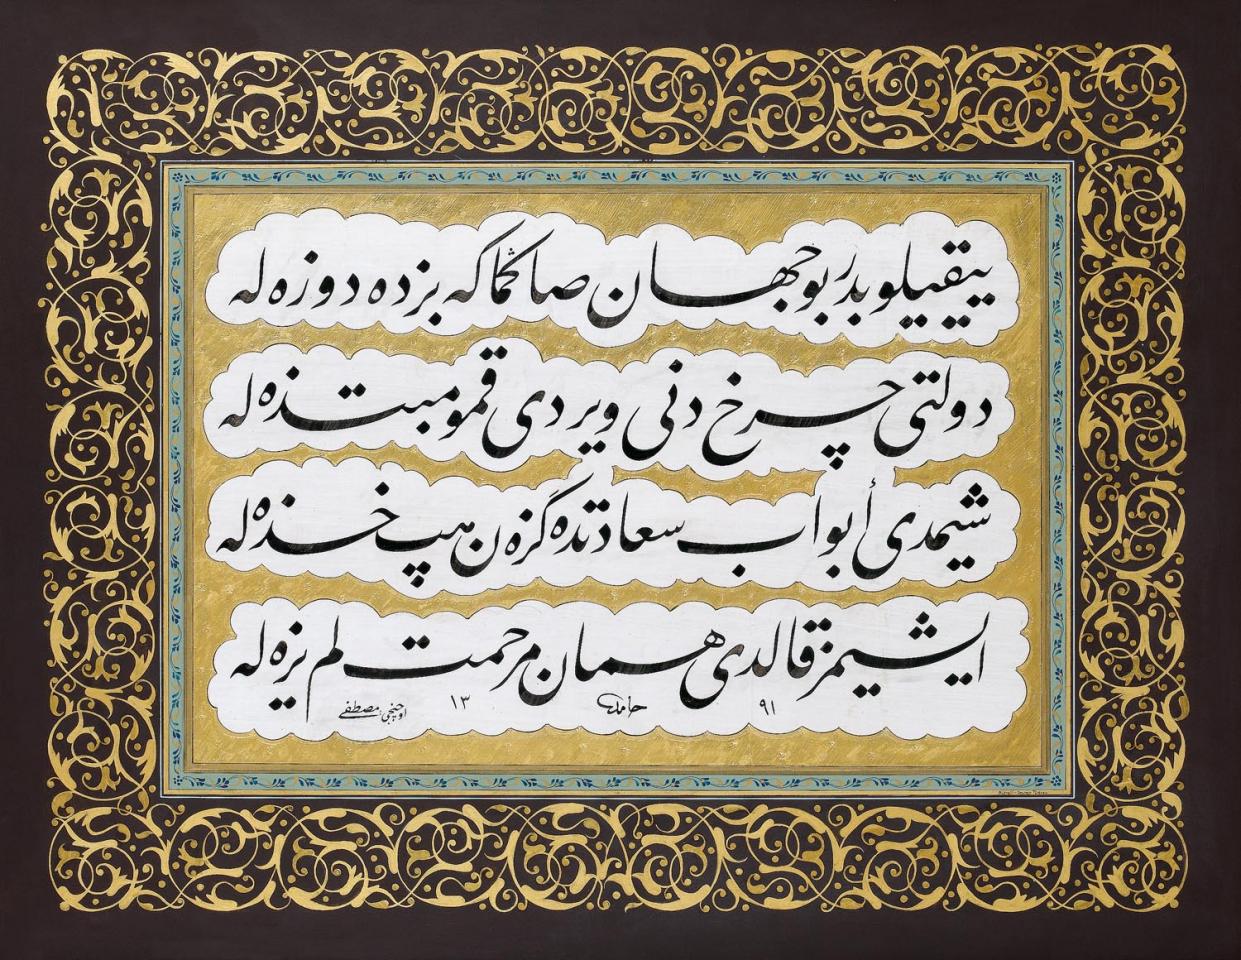 ييقيلوبدر بو جهان صانماكه بزده دوزه له
دولتى چرخ دنى ويردى قمو مبتذله
شيمدى أبواب سعادتده گزه ن هپ خذله
ايشيمز قالدى همان مرحمت لم يزه له
٩١ حامد ١٣
اوچنجى مصطفى